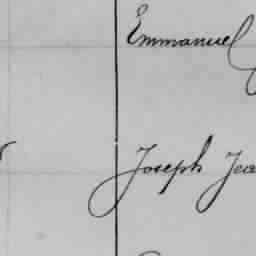 Emmanuel
Joseph Jea